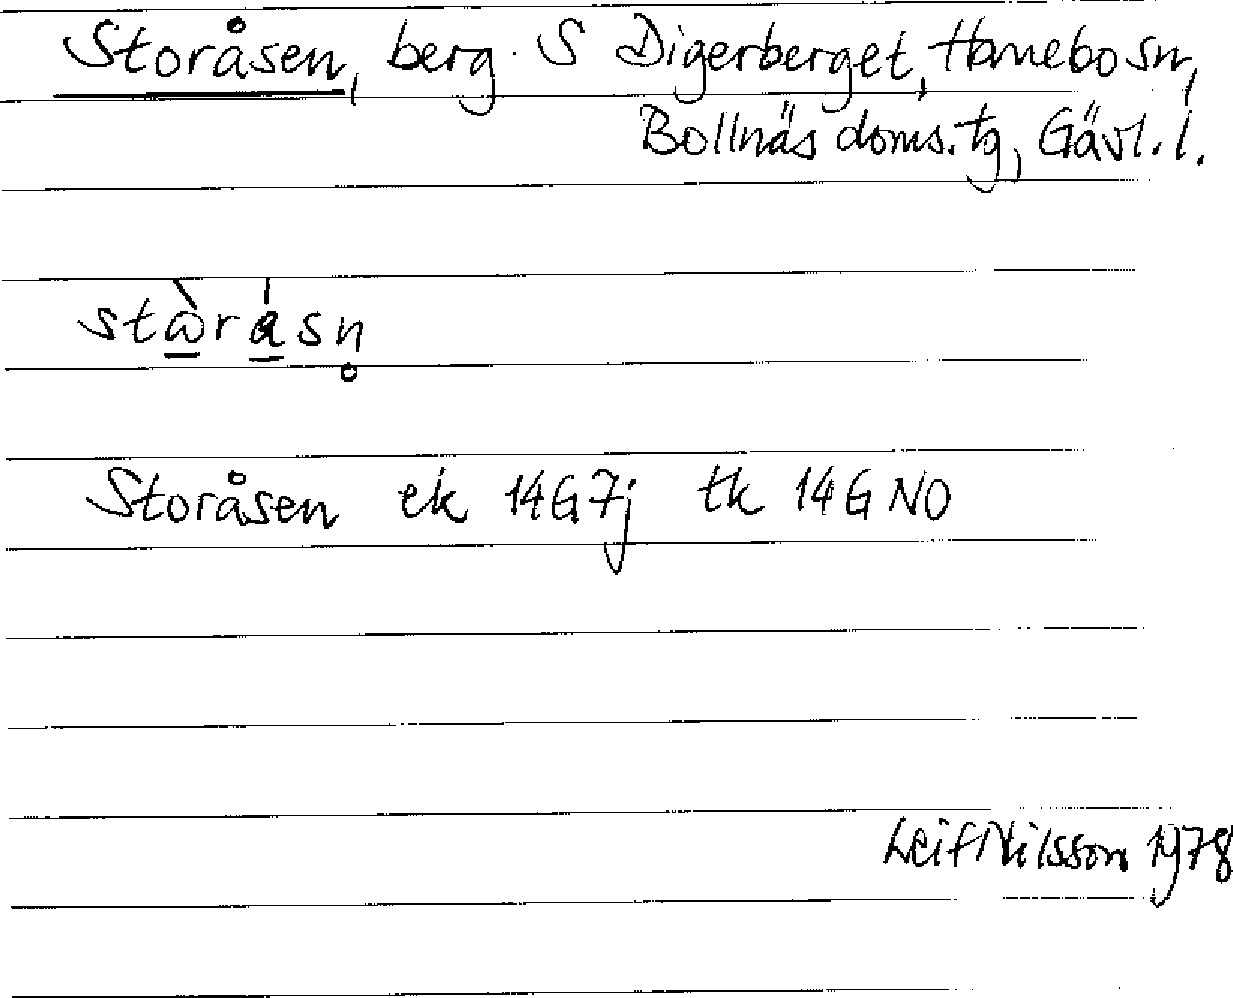 Storåsen, berg. S Digerberget, Hanebo sn,
Bollnäs doms. tg, Gävl. l.
stὼ̲rá̲sn̥
Storåsen ek 14G7j tk 14G NO
Leif Nilsson 1978